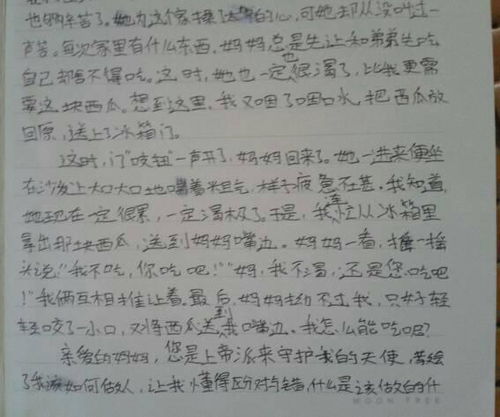 也够辛苦了。她为这个家操了太多的心,可她却从没叫过一
声苦。每次家里有什么东西,妈妈总是先让我和弟弟先吃
自己却舍不得吃。这时,她也一定也很渴了,比我更需
要这块西瓜。想到这里,我又咽了咽口水,把西瓜放
回原,送上了冰箱门。
这时,门"吱钮"一声开了,妈妈回来了。她一进来便坐
在沙发上大口大口地喘着粗气,样子疲惫不甚。我知道,
她现在一定很累,一定渴极了。于是,我连忙从冰箱里
拿出那块西瓜,送到妈妈嘴边。妈妈一看,摇一摇
头说:"我不吃,你吃吧!""妈,我不渴,还是您吃吧
!"我俩互相推让着,最后,妈妈拗不过我,只好轻
轻咬了一小口,又将西瓜送到我嘴边。我怎么能吃呢?
亲爱的妈妈,您是上帝派来守护我的天使,教给
了我该如何做人,让我懂得区分对与错,什么是该做的什
MOON FREE